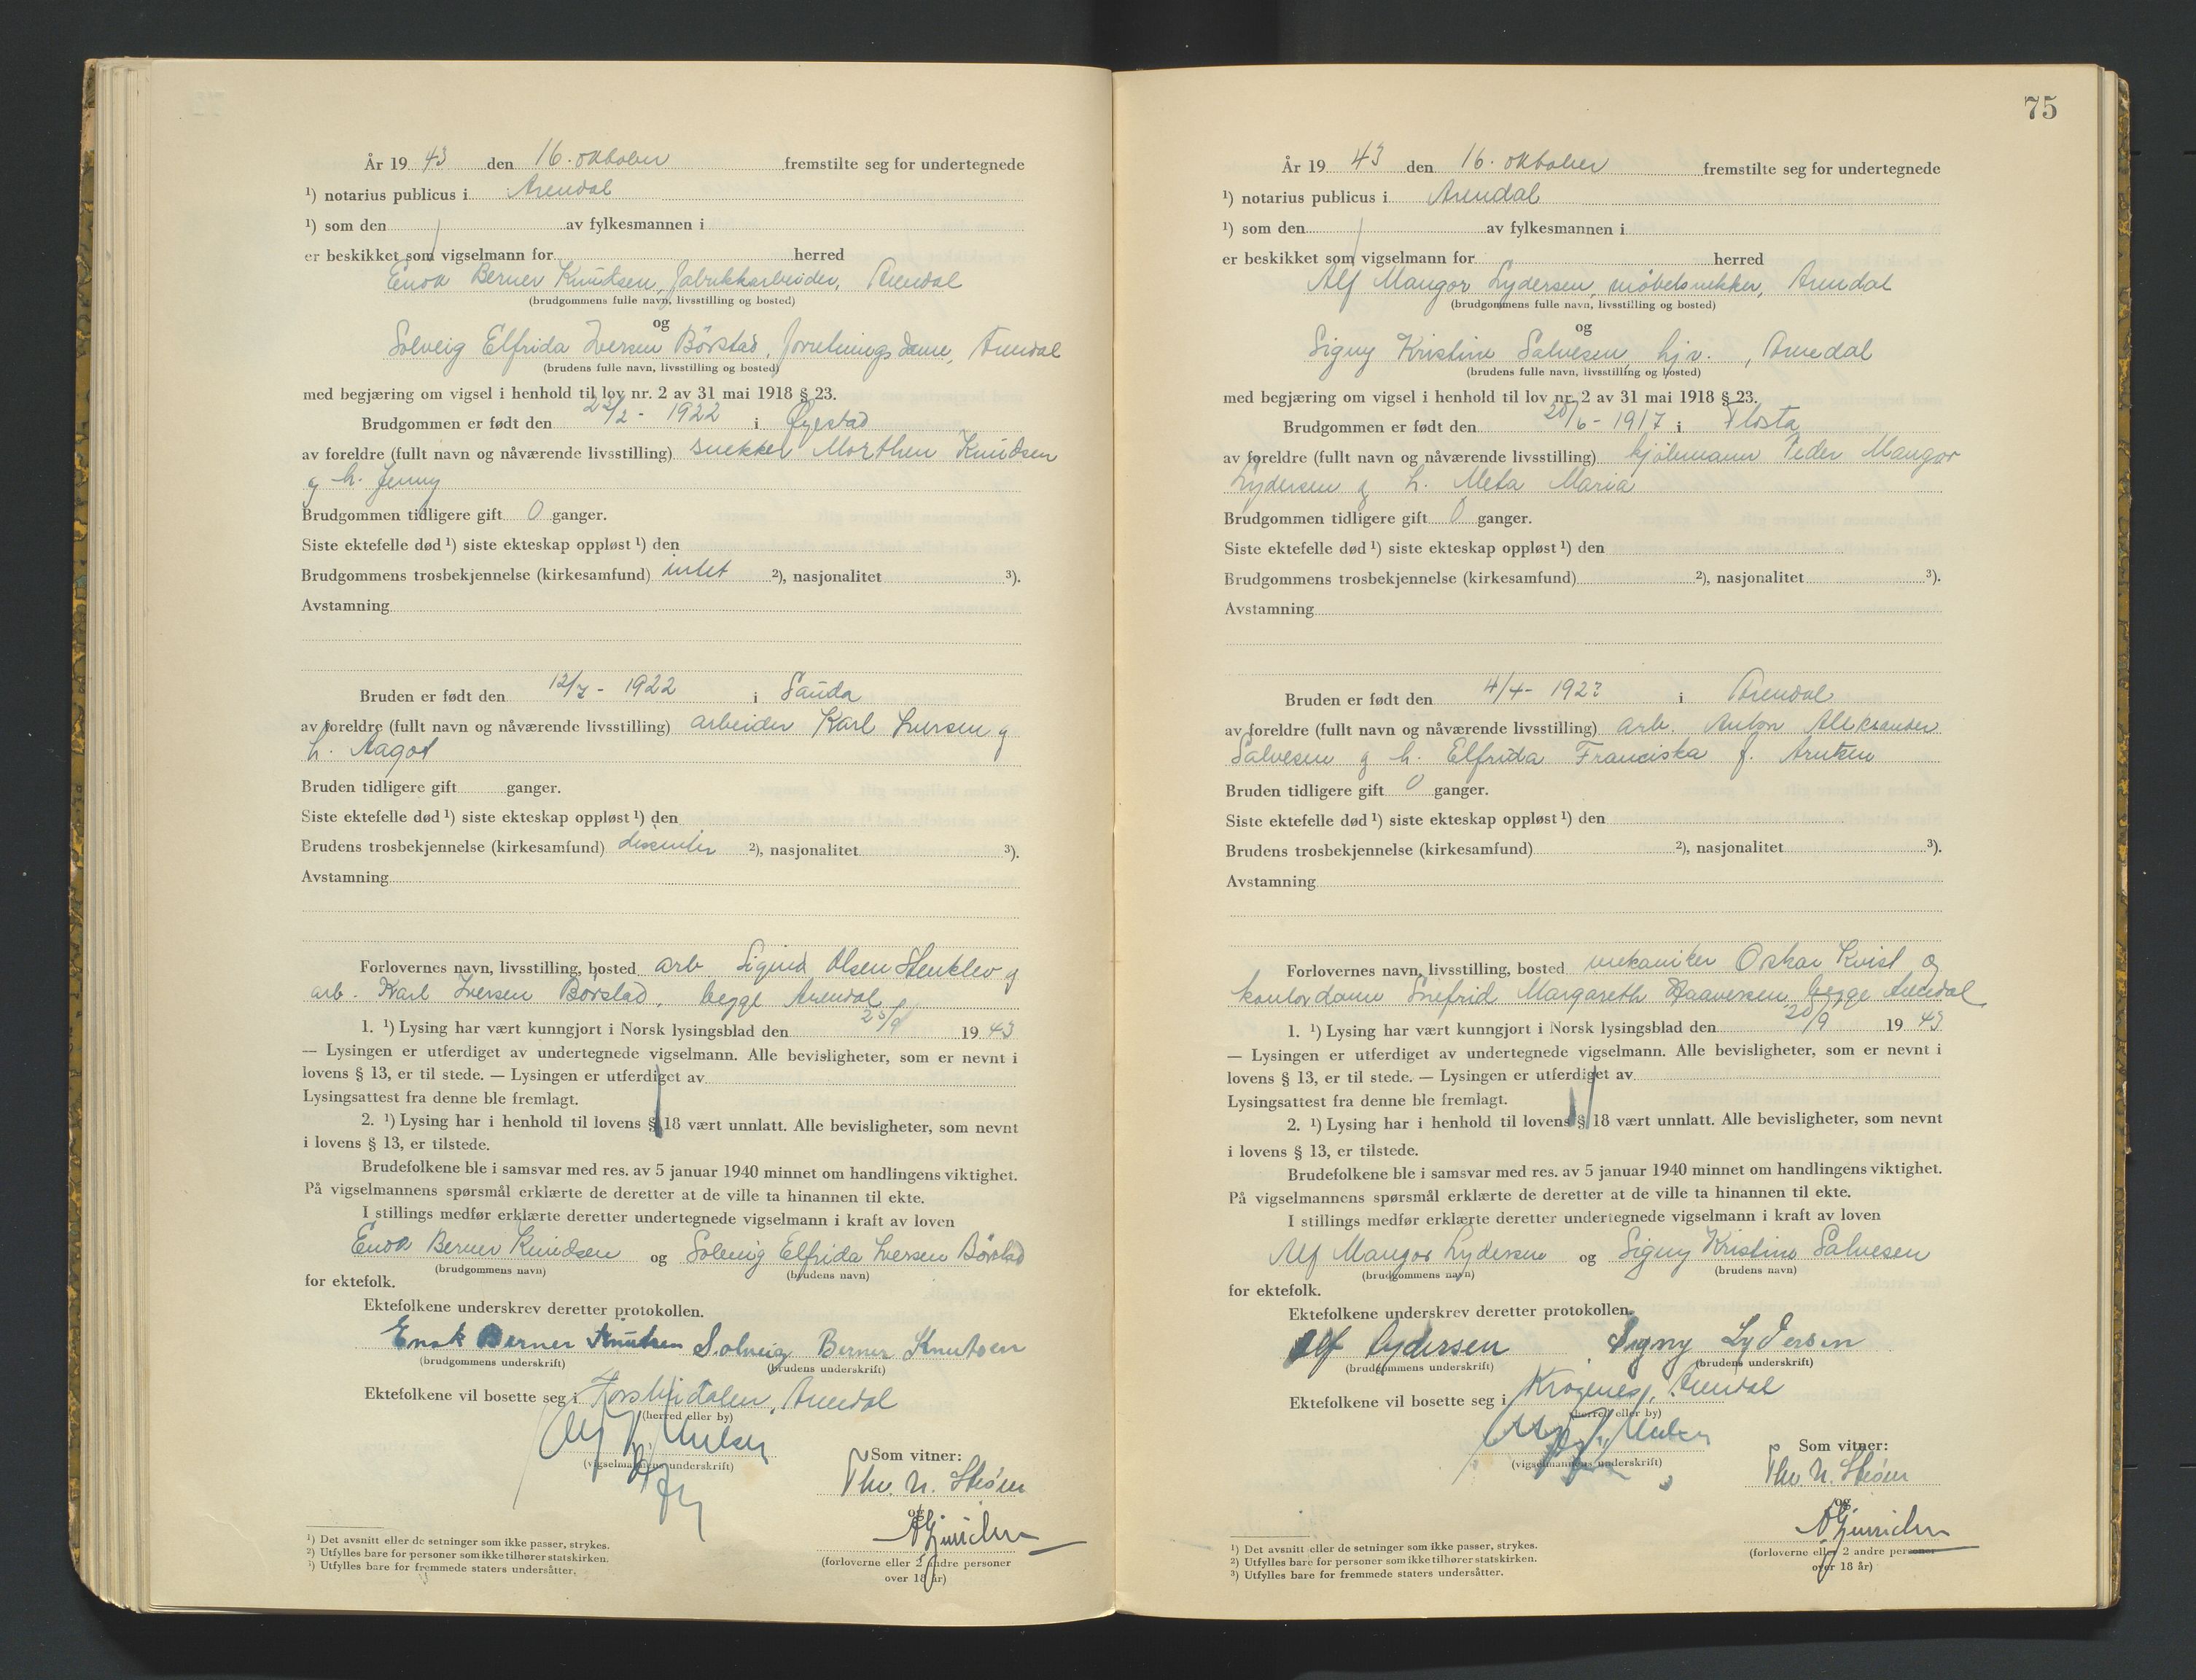 År 19 43 den 16. oktober fremstilte seg for undertegnede
¹) notarius publicus i Arendal
¹) som den av fylkesmannen i
er beskikket som vigselmann for herred
Enok Berner Knutsen, fabrikkarbeider, Arendal
(brudgommens fulle navn, livsstilling og bosted)
og
Solveig Elfrida Iversen Börstad, forretningsdame, Arendal
(brudens fulle navn, livsstilling og bosted)
med begjæring om vigsel i henhold til lov nr. 2 av 31 mai 1918 § 23.
Brudgommen er født den /2 - 1922 i Øyestad
av foreldre (fullt navn og nåværende livsstilling) snekker Morthen Knudsen
og h. Jenny
Brudgommen tidligere gift 0 ganger.
Siste ektefelle død ¹) siste ekteskap oppløst ¹) den
Brudgommens trosbekjennelse (kirkesamfund) intet ²), nasjonalitet ³).
Avstamning
Bruden er født den 12/7 - 1922 i Sauda
av foreldre (fullt navn og nåværende livsstilling) arbeider Karl Iversen og
h. Aagot
Bruden tidligere gift ganger.
Siste ektefelle død ¹) siste ekteskap oppløst ¹) den
Brudens trosbekjennelse (kirkesamfund) dissenter ²), nasjonalitet ³).
Avstamning
Forlovernes navn, livsstilling, bosted arb. Olsen Stenklev og
arb. Karl Iversen Börstad, begge Arendal
1. ¹) Lysing har vært kunngjort i Norsk lysingsblad den /9 19 43
— Lysingen er utferdiget av undertegnede vigselmann. Alle bevisligheter, som er nevnt i
lovens § 13, er til stede. — Lysingen er utferdiget av
Lysingsattest fra denne ble fremlagt.
2. ¹) Lysing har i henhold til lovens § 18 vært unnlatt. Alle bevisligheter, som nevnt
i lovens § 13, er tilstede.
Brudefolkene ble i samsvar med res. av 5 januar 1940 minnet om handlingens viktighet.
På vigselmannens spørsmål erklærte de deretter at de ville ta hinannen til ekte.
I stillings medfør erklærte deretter undertegnede vigselmann i kraft av loven
Enok Berner Knudsen og Solveig Elfrida Iversen Börstad
(brudgommens navn) (brudens navn)
for ektefolk.
Ektefolkene underskrev deretter protokollen.
Enok Berner Knutsen Solveig Berner Knutsen
(brudgommens underskrift) (brudens underskrift)
Ektefolkene vil bosette seg i Arendal
(herred eller by)
(vigselmannens underskrift)
Som vitner:
Thv. N. Strøm
og
(forloverne eller 2 andre personer
over 18 år)
¹) Det avsnitt eller de setninger som ikke passer, strykes.
²) Utfylles bare for personer som ikke tilhører statskirken.
³) Utfylles bare for fremmede staters undersåtter.
75
År 19 43 den 16. oktober fremstilte seg for undertegnede
¹) notarius publicus i Arendal
¹) som den av fylkesmannen i
er beskikket som vigselmann for herred
Alf Mangor Lydersen, møbelsnekker, Arendal
(brudgommens fulle navn, livsstilling og bosted)
og
Signy Kristine Salvesen, hjv., Arendal
(brudens fulle navn, livsstilling og bosted)
med begjæring om vigsel i henhold til lov nr. 2 av 31 mai 1918 § 23.
Brudgommen er født den /6 - 1917 i Flosta
av foreldre (fullt navn og nåværende livsstilling) Peder Mangor
Lydersen og h. Meta Maria
Brudgommen tidligere gift 0 ganger.
Siste ektefelle død ¹) siste ekteskap oppløst ¹) den
Brudgommens trosbekjennelse (kirkesamfund) ²), nasjonalitet ³).
Avstamning
Bruden er født den 4/4 - i Arendal
av foreldre (fullt navn og nåværende livsstilling) arb. Anton Alexander
Salvesen og h. Elfrida Franciska f. Arntsen
Bruden tidligere gift 0 ganger.
Siste ektefelle død ¹) siste ekteskap oppløst ¹) den
Brudens trosbekjennelse (kirkesamfund) ²), nasjonalitet ³).
Avstamning
Forlovernes navn, livsstilling, bosted mekaniker Oskar Kvist og
kontordame Snefrid Margareth Haaversen, begge Arendal
1. ¹) Lysing har vært kunngjort i Norsk lysingsblad den 20/9 19 43
— Lysingen er utferdiget av undertegnede vigselmann. Alle bevisligheter, som er nevnt i
lovens § 13, er til stede. — Lysingen er utferdiget av
Lysingsattest fra denne ble fremlagt.
2. ¹) Lysing har i henhold til lovens § 18 vært unnlatt. Alle bevisligheter, som nevnt
i lovens § 13, er tilstede.
Brudefolkene ble i samsvar med res. av 5 januar 1940 minnet om handlingens viktighet.
På vigselmannens spørsmål erklærte de deretter at de ville ta hinannen til ekte.
I stillings medfør erklærte deretter undertegnede vigselmann i kraft av loven
Alf Mangor Lydersen og Signy Kristine Salvesen
(brudgommens navn) (brudens navn)
for ektefolk.
Ektefolkene underskrev deretter protokollen.
Alf Lydersen Signy Lydersen
(brudgommens underskrift) (brudens underskrift)
Ektefolkene vil bosette seg i Krøgenes, Arendal
(herred eller by)
(vigselmannens underskrift)
Som vitner:
Thv. N. Strøm
og
(forloverne eller 2 andre personer
over 18 år)
¹) Det avsnitt eller de setninger som ikke passer, strykes.
²) Utfylles bare for personer som ikke tilhører statskirken.
³) Utfylles bare for fremmede staters undersåtter.